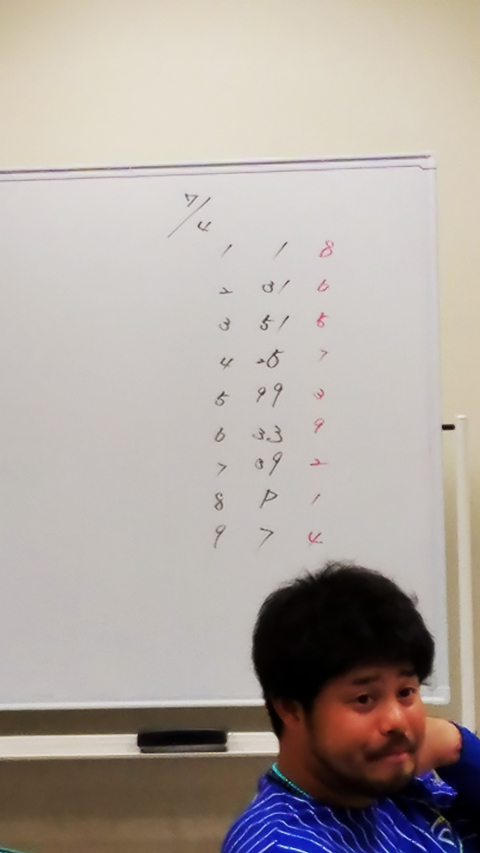 7/4
1 1 8
2 31 6
3 51 5
4 25 7
5 99 3
6 33 9
7 39 2
8 P 1
9 7 4